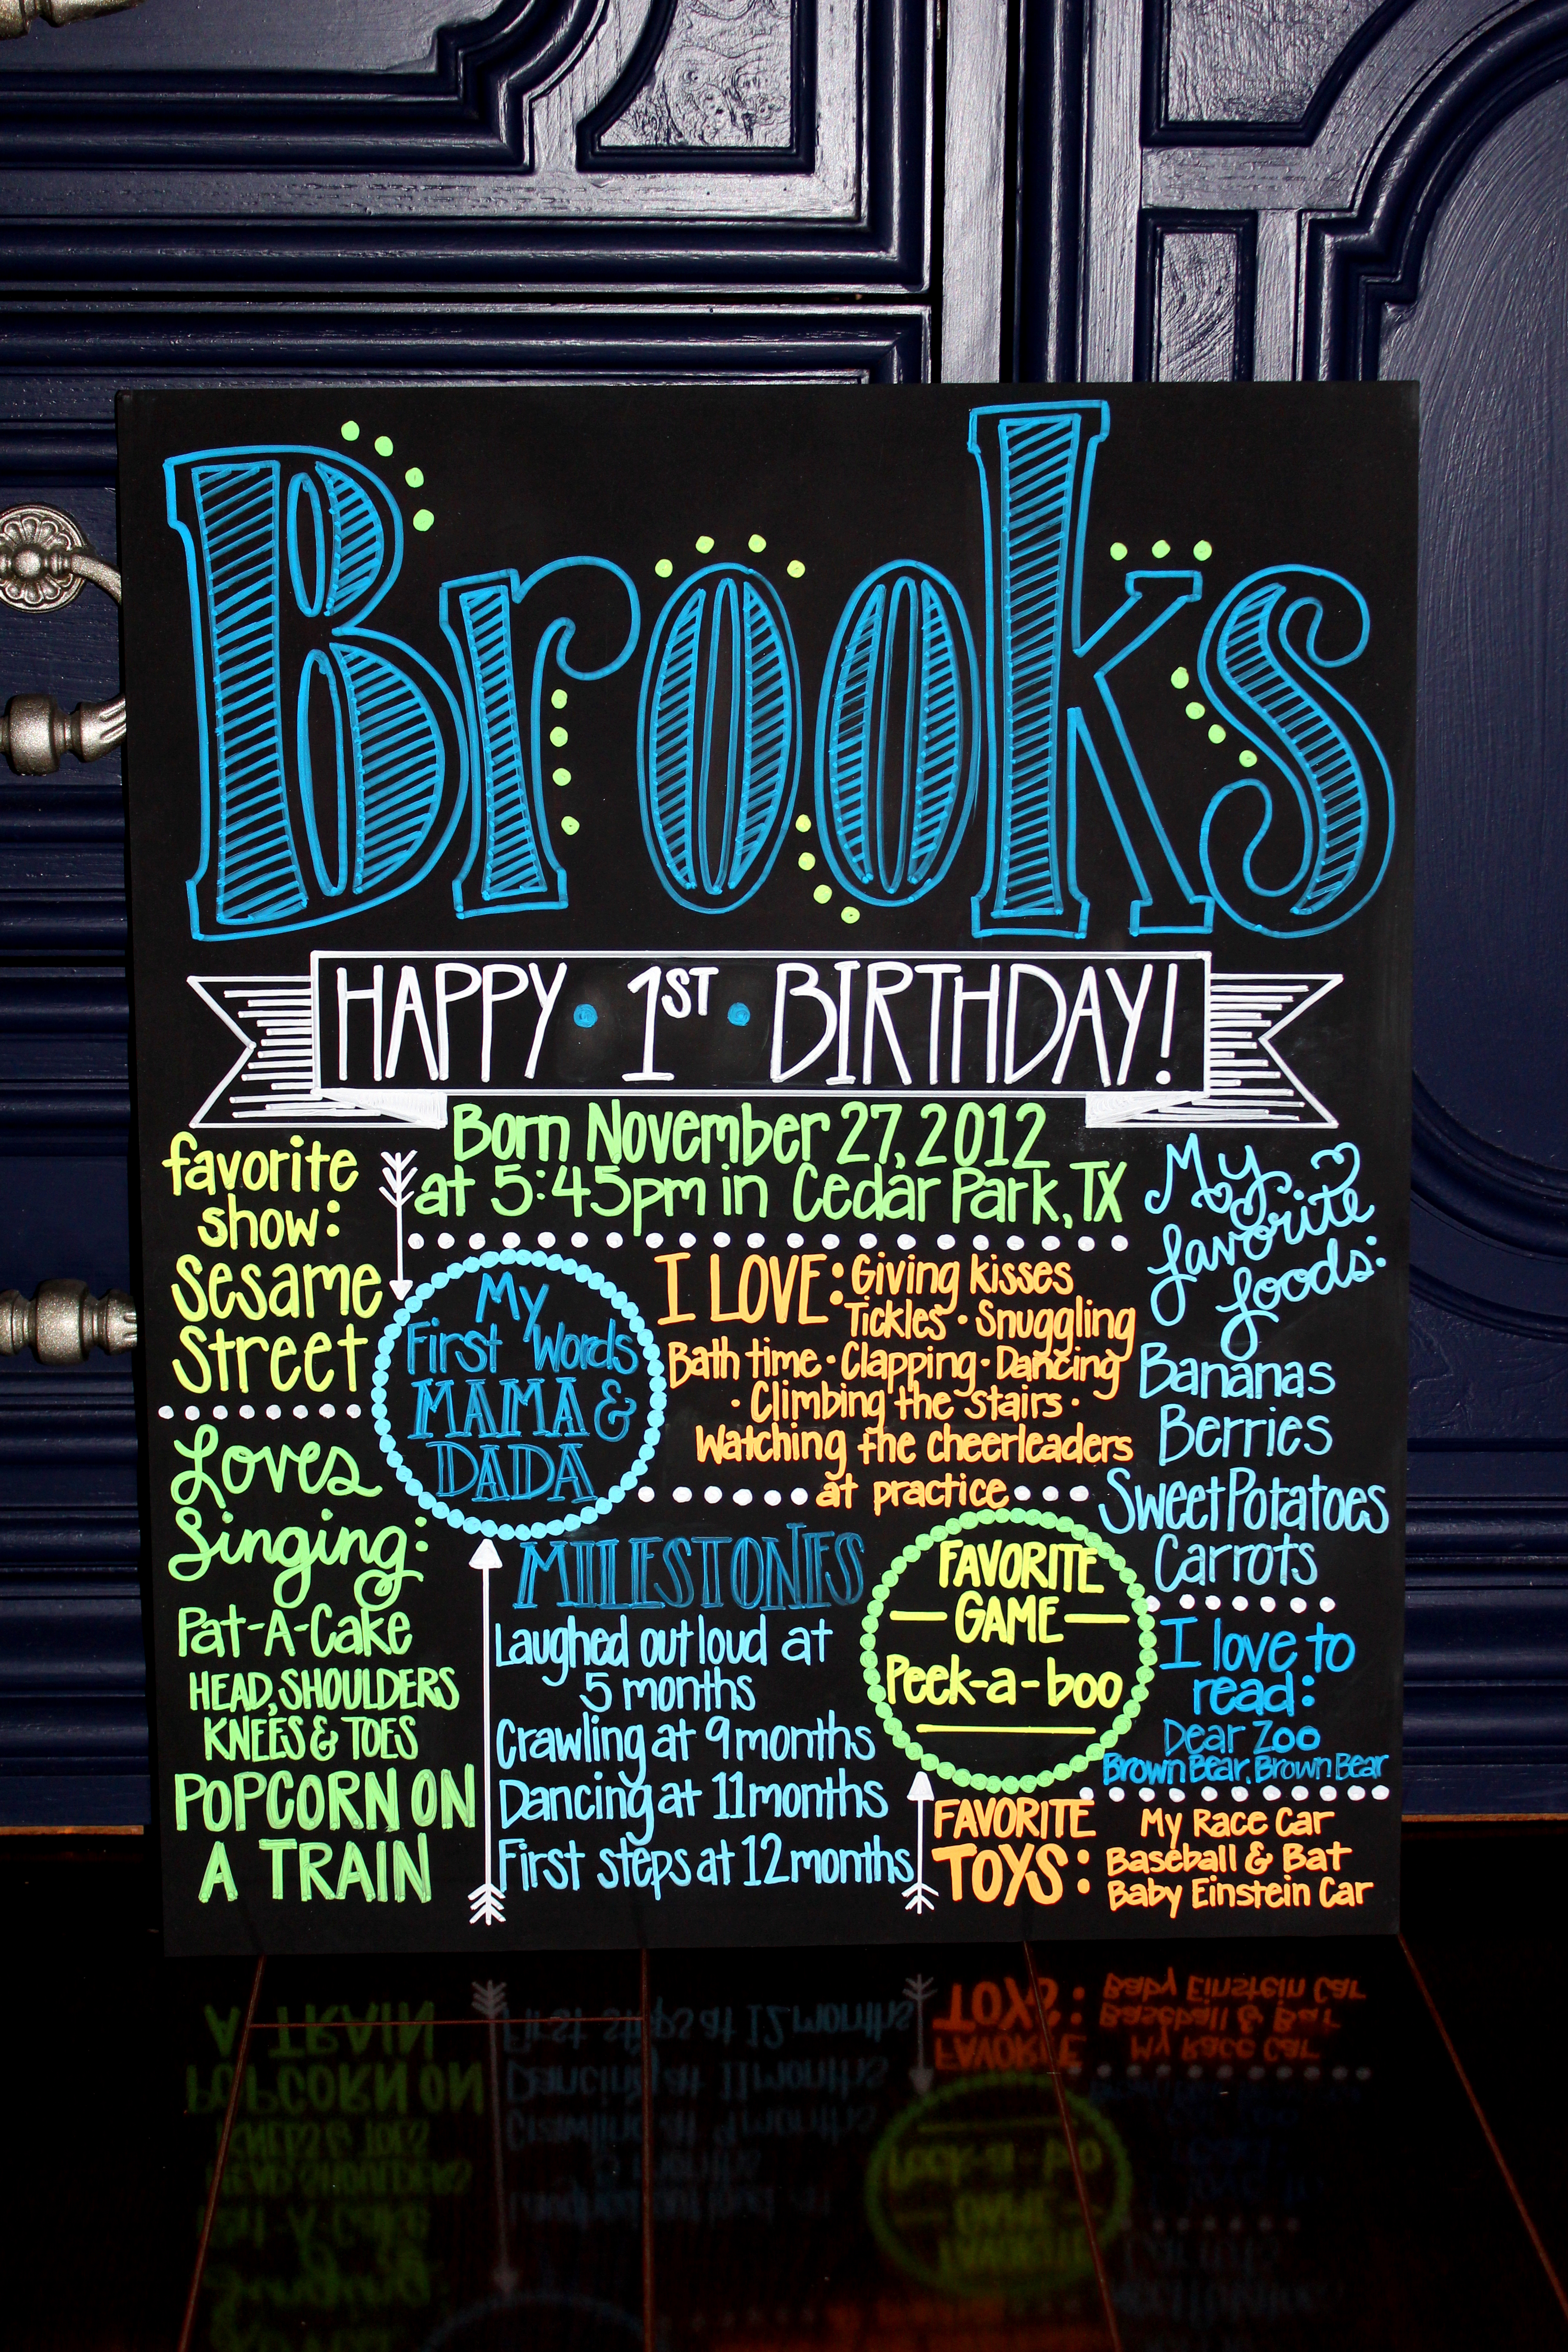 Brooks
HAPPY • 1ST • BIRTHDAY!
Born November 27, 2012
at 5:45pm in Cedar Park, TX
favorite
show:
Sesame
Street
Loves
Singing:
Pat-A-Cake
HEAD, SHOULDERS
KNEES & TOES
POPCORN ON
A TRAIN
My
First Words
MAMA &
DADA
I LOVE: Giving kisses
Tickles • Snuggling
Bath time • Clapping • Dancing
• Climbing the stairs •
Watching the cheerleaders
at practice
MILESTONES
Laughed out loud at
5 months
Crawling at 9 months
Dancing at 11 months
First steps at 12 months
FAVORITE
GAME
Peek-a-boo
My
favorite
foods:
Bananas
Berries
Sweet Potatoes
Carrots
I love to
read:
Dear Zoo
Brown Bear, Brown Bear
FAVORITE
TOYS:
My Race Car
Baseball & Bat
Baby Einstein Car